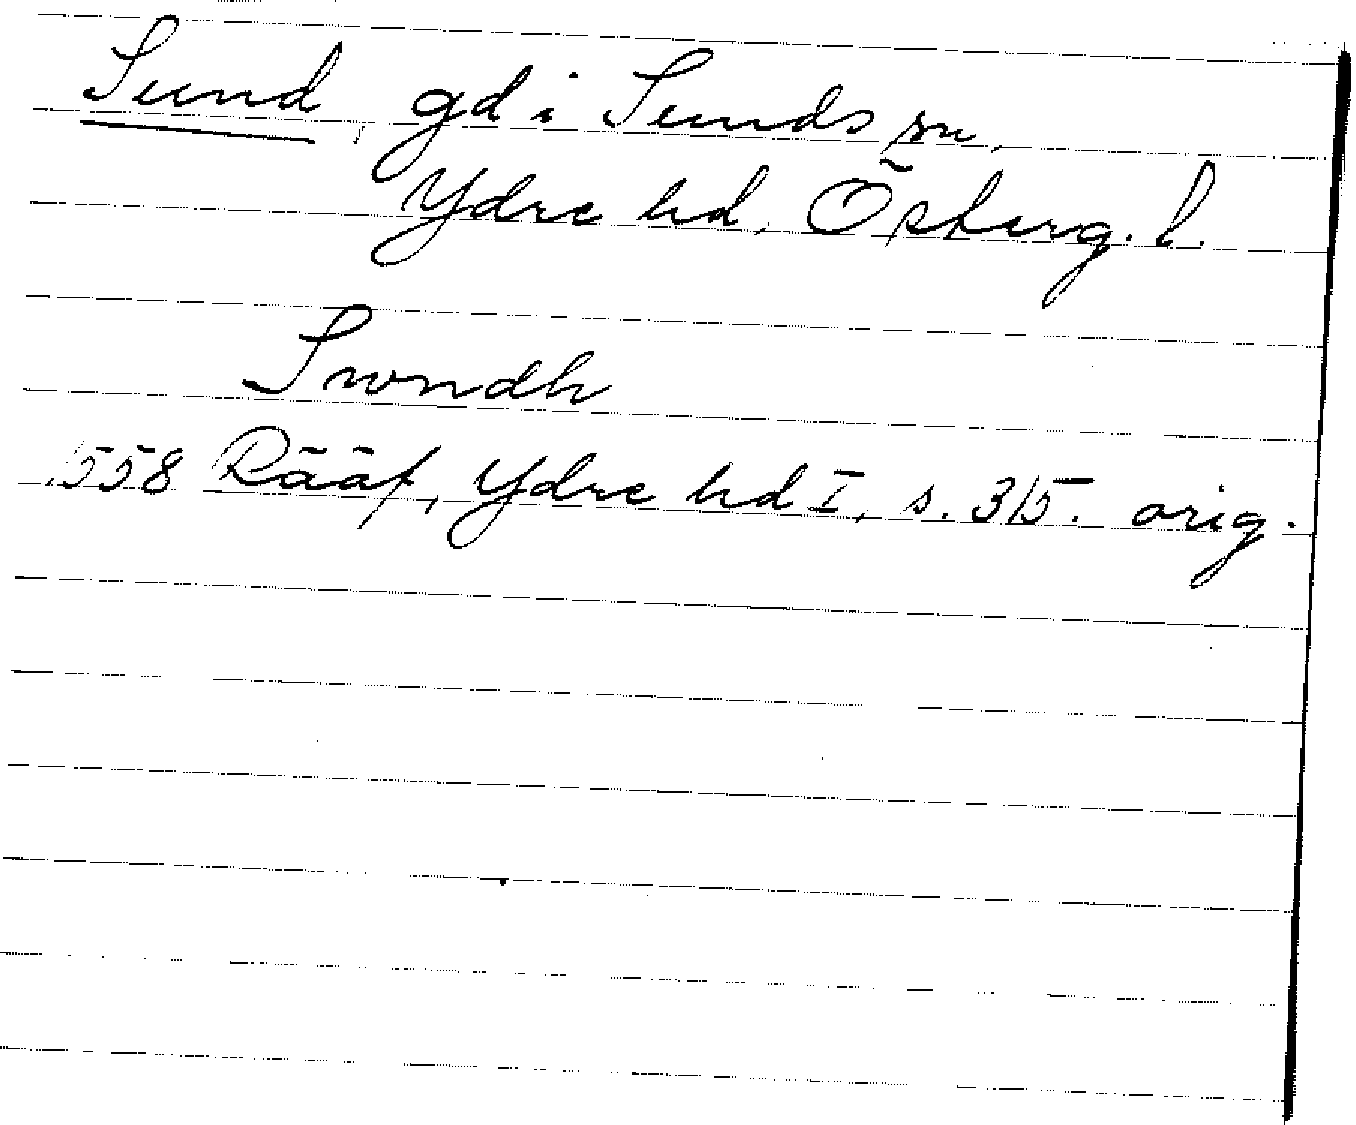 Sund, gd i Sunds sn,
Ydre hd, Österg. l.
Swndh
1558 Rääf, Ydre hd I, s. 315. orig.